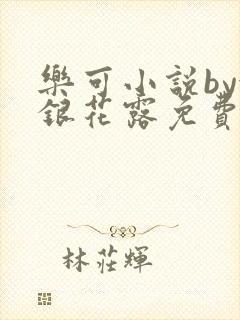 樂可小説by
銀花露免費
林莊輝